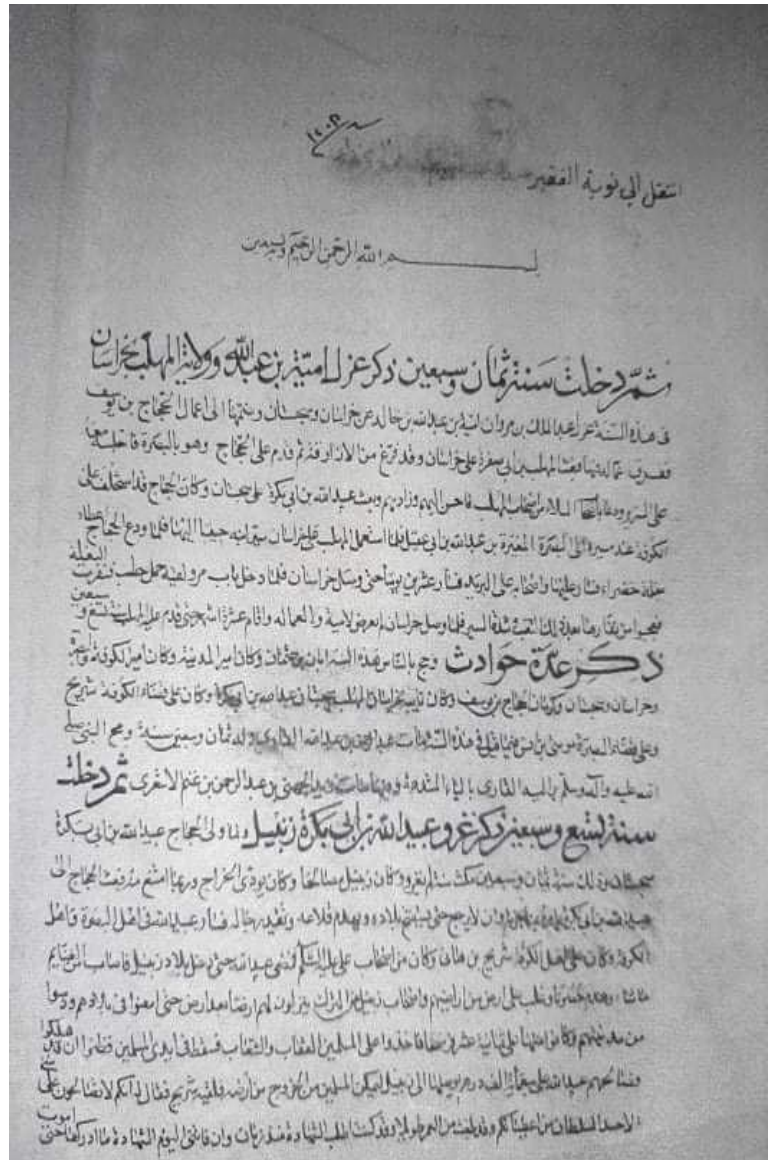 سنة ١٠٠٢
انتقل الى نوبة الفقير
بسم الله الرحمن الرحيم وبه نستعين
ثم دخلت سنة ثمان وسبعين ذكر عزل امية بن عبد الله وولاية المهلب خراسان
فى هذه السنة عزل عبد الملك بن مروان امية بن عبد الله بن خالد عن خراسان وسجستان وضمها الى اعمال الحجاج بن يوسف
ففرق عماله فيها فبعث المهلب بن ابى صفرة على خراسان وقد فرغ من الازارقة ثم قدم على الحجاج وهو بالبصرة فاجلسه معه
على السرير ودعا باصحاب البلاء من اصحاب المهلب فاحسن اليهم وزادهم وبعث عبيد الله بن ابى بكرة على سجستان وكان الحجاج قد استخلف على
الكوفة عند مسيره الى البصرة المغيرة بن عبد الله بن ابى عقيل فلما استعمل المهلب على خراسان سير ابنه حبيبا اليها فلما ودع الحجاج اعطاه
بغلة خضراء فسار عليها واصحابه على البريد فسار عشرين يوما حتى وصل خراسان فلما دخل باب مرو لقيه حمل حطب فنفرت البغلة
فعجبوا من نفارها بعد ذلك التعب وشدة السير فلما وصل خراسان لم يعرض لامية ولا لعماله واقام عشرة اشهر حتى قدم عليه المهلب سنة تسع وسبعين
ذكر عدة حوادث وحج بالناس هذه السنة ابان بن عثمان وكان امير المدينة وكان امير الكوفة والبصرة
وخراسان وسجستان وكرمان الحجاج بن يوسف وكان نايبه بخراسان المهلب وبسجستان عبيد الله بن ابى بكرة وكان على قضاء الكوفة شريح
وعلى قضاء البصرة موسى بن انس فيما قيل فى هذه السنة مات عبد الرحمن بن عبد الله القارى وله ثمان وسبعون سنة ومسح النبى صلى
الله عليه وآله وسلم براسه القارى بالياء المشددة وفيها مات زيد بن خالد الجهنى عبد الرحمن بن غنم الاشعرى ثم دخلت
سنة تسع وسبعين ذكر غزو عبيد الله بن ابى بكرة زنبيل ولما ولى الحجاج عبيد الله بن ابى بكرة
سجستان وذلك سنة ثمان وسبعين مكث سنة لم يغز وكان زنبيل مصالحا وكان يودى الخراج وربما امتنع منه فبعث الحجاج الى
عبيد الله بن ابى بكرة يامره بمناجزته وان لا يرجع حتى يستبيح بلاده ويهدم قلاعه ويقيد رجاله فسار عبيد الله فى اهل البصرة واهل
الكوفة وكان على اهل الكوفة شريح بن هانى وكان من اصحاب على عليه السلام فمضى عبيد الله حتى دخل بلاد زنبيل فاصاب من الغنايم
ما شاء وهدم حصونا وغلب على ارض من اراضيهم واصحاب زنبيل من الترك يتركون لهم ارضا بعد ارض حتى امعنوا فى بلادهم ودنوا
من مدينتهم وكانوا منها على ثمانية عشر فرسخا فاخذوا على المسلمين العقاب والشعاب فسقط فى ايدى المسلمين فظنوا ان قد هلكوا
فصالحهم عبيد الله على سبعماية الف درهم يوصلها الى زنبيل ليمكن المسلمين من الخروج من ارضه فلقيه شريح فقال له انكم لا تصالحون على شى
الا حسبه السلطان من اعطياتكم وقد بلغت من العمر طويلا وقد كنت اطلب الشهادة منذ زمان وان فاتتنى اليوم الشهادة ما ادركها حتى اموت